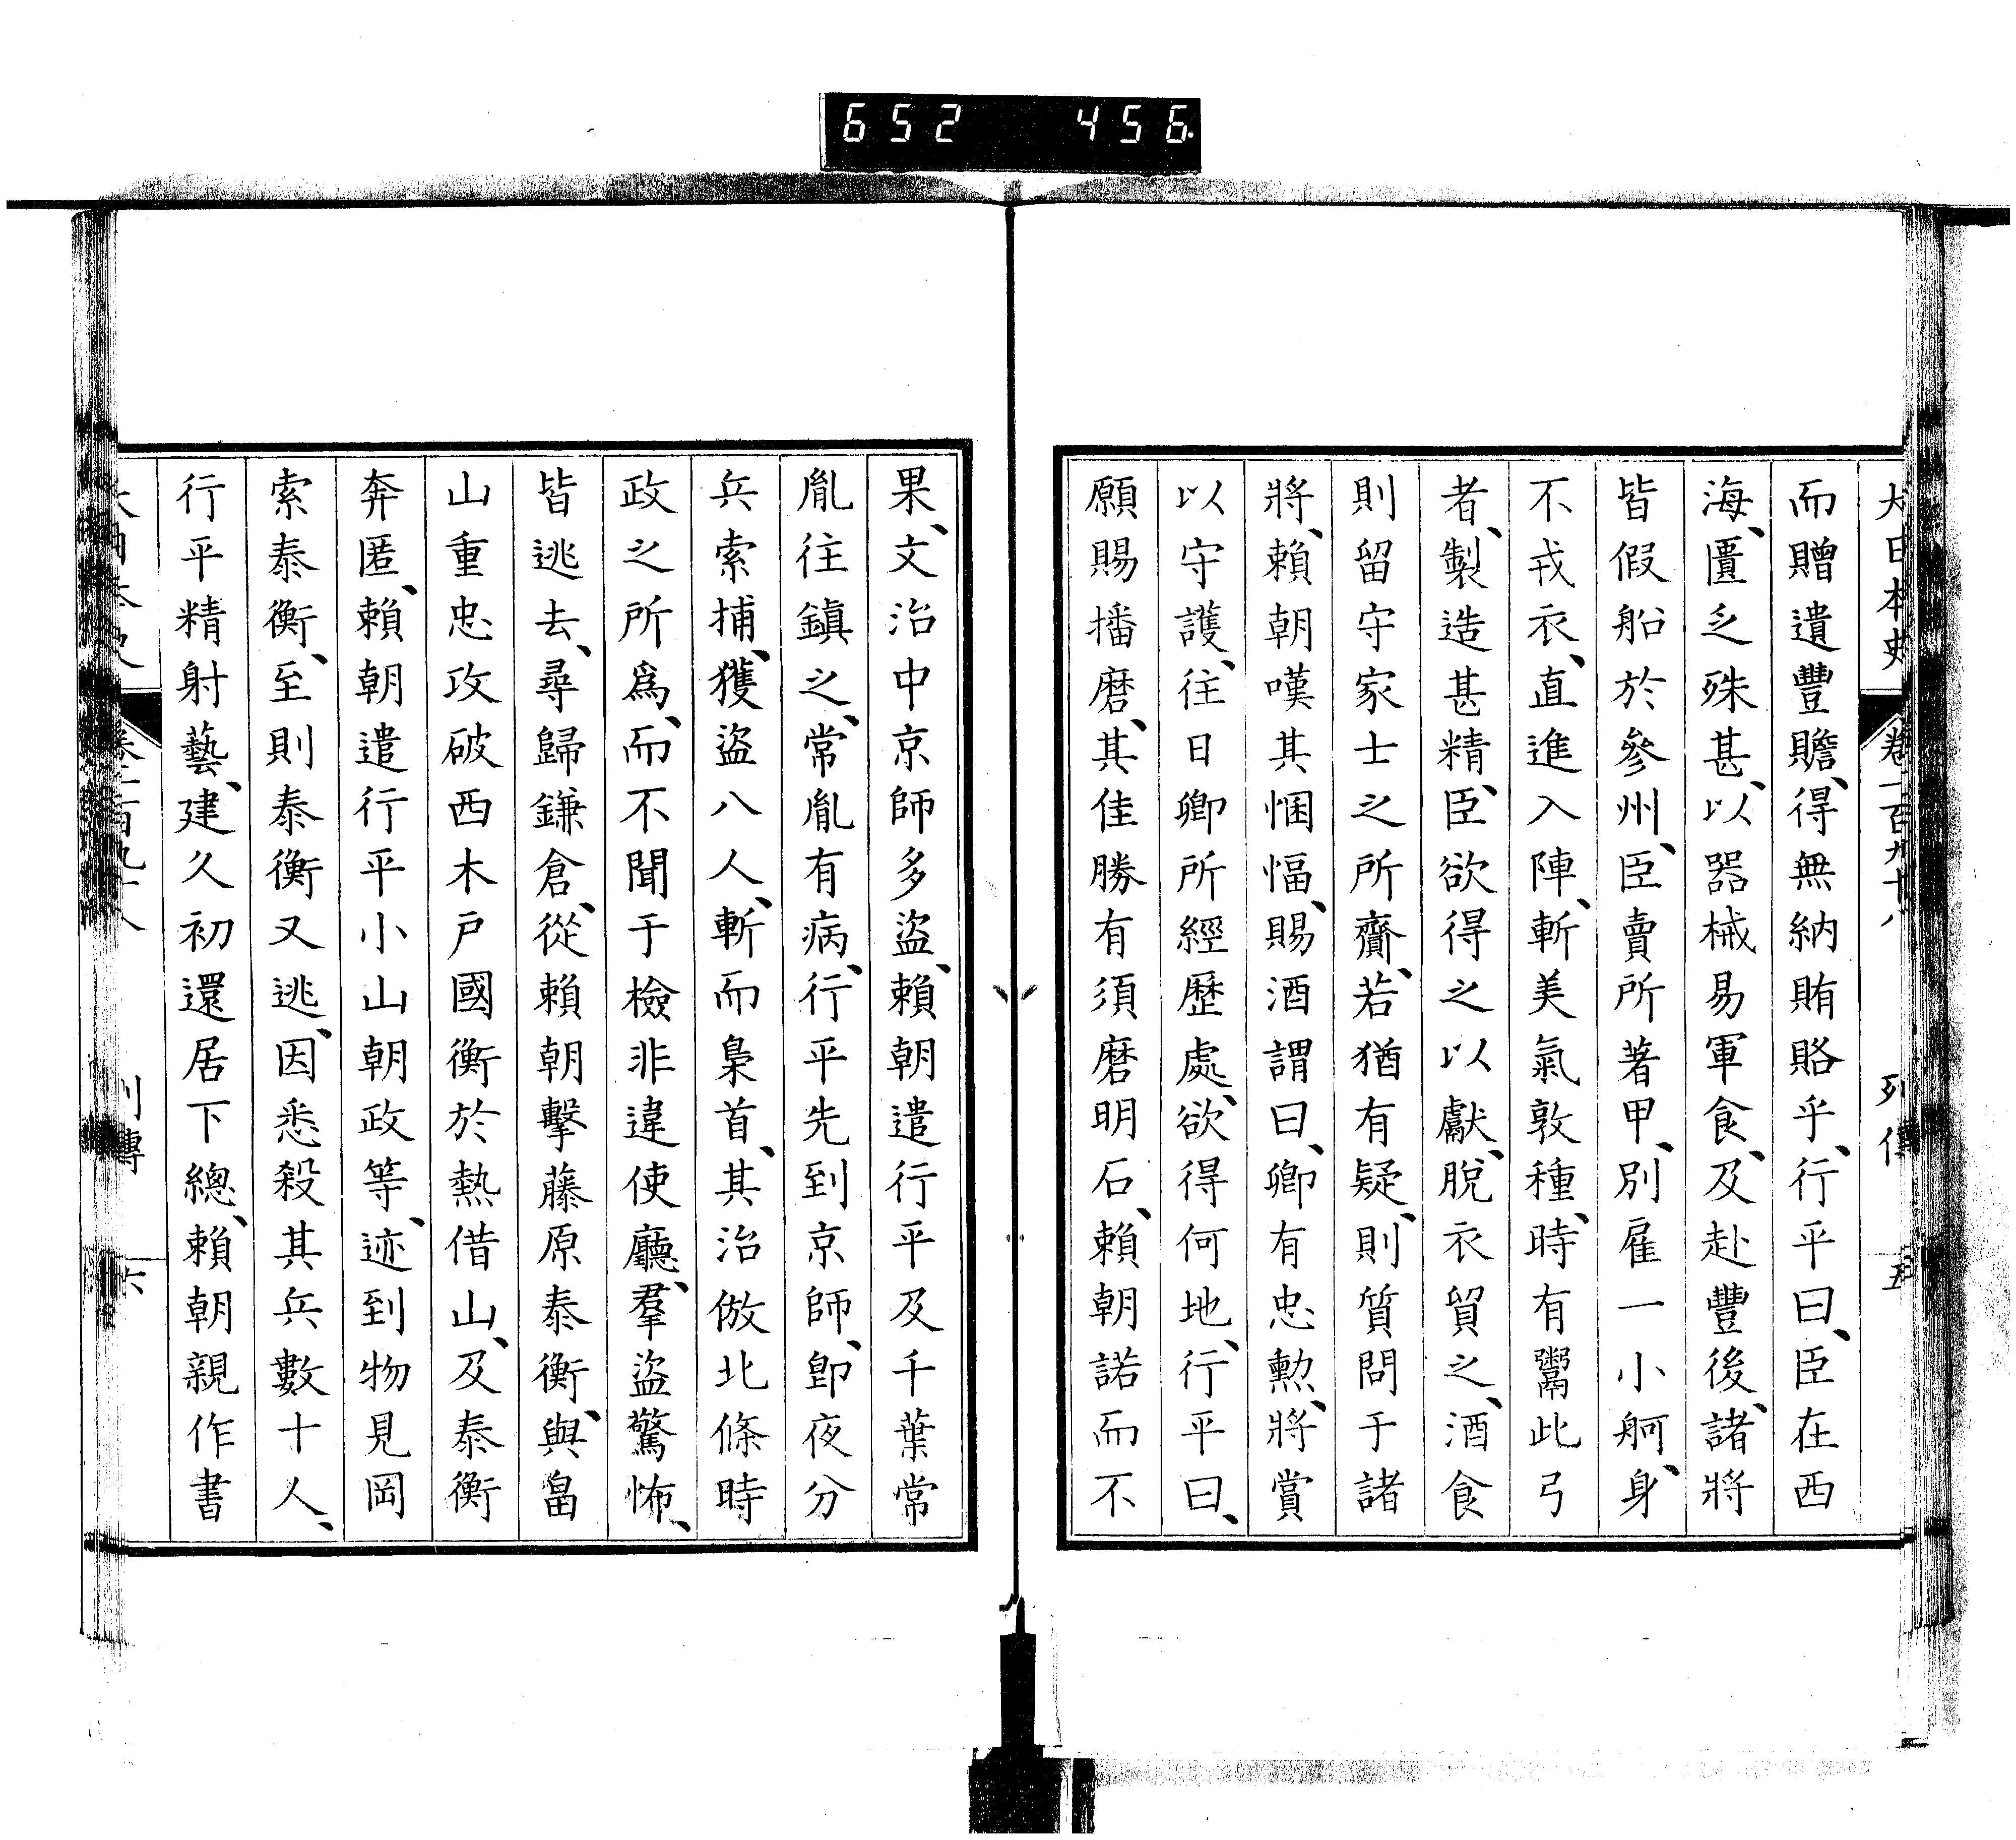 652 456
大日本史 卷一百九十八 列傳 五
而贈遺豐贍、得無納賄賂乎、行平曰、臣在西
海、匱乏殊甚、以器械易軍食、及赴豐後、諸將
皆假船於參州、臣賣所著甲、別雇一小舸、身
不戎衣、直進入陣、斬美氣敦種、時有鬻此弓
者、製造甚精、臣欲得之以獻、脫衣貿之、酒食
則留守家士之所齎、若猶有疑、則質問于諸
將、賴朝嘆其悃愊、賜酒謂曰、卿有忠勲、將賞
以守護、往日卿所經歷處、欲得何地、行平曰、
願賜播磨、其佳勝有須磨明石、賴朝諾而不
果、文治中京師多盜、賴朝遣行平及千葉常
胤往鎭之、常胤有病、行平先到京師、卽夜分
兵索捕、獲盜八人、斬而梟首、其治倣北條時
政之所爲、而不聞于檢非違使廳、羣盜驚怖、
皆逃去、尋歸鎌倉、從賴朝擊藤原泰衡、與畠
山重忠攻破西木戶國衡於熱借山、及泰衡
奔匿、賴朝遣行平小山朝政等、迹到物見岡
索泰衡、至則泰衡又逃、因悉殺其兵數十人、
行平精射藝、建久初還居下總、賴朝親作書
列傳 六